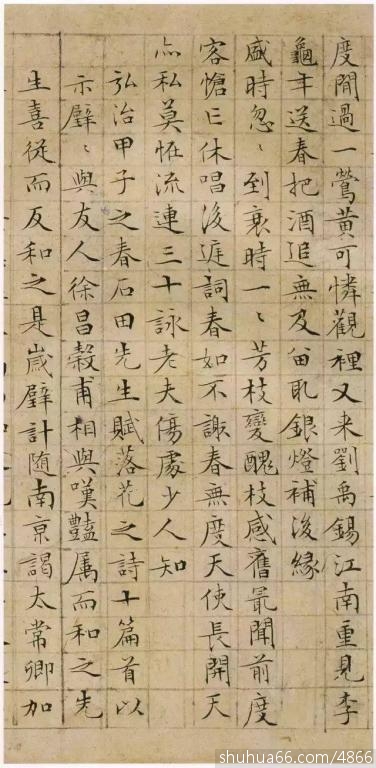 度閒過一鶯黃可憐觀裡又来劉禹錫江南重見李
龜年送春把酒追無及留取銀燈補後緣
盛時忽〻到衰時一〻芳枝變醜枝感舊冣聞前度
客愴亡休唱後庭詞春如不謝春無度天使長開天
亦私莫怪流連三十詠老夫傷處少人知
弘治甲子之春石田先生賦落花之詩十篇首以
示璧〻與友人徐昌穀甫相與嘆艷属而和之先
生喜從而反和之是歲璧計随南京謁太常卿加
shuhua66.com/4866